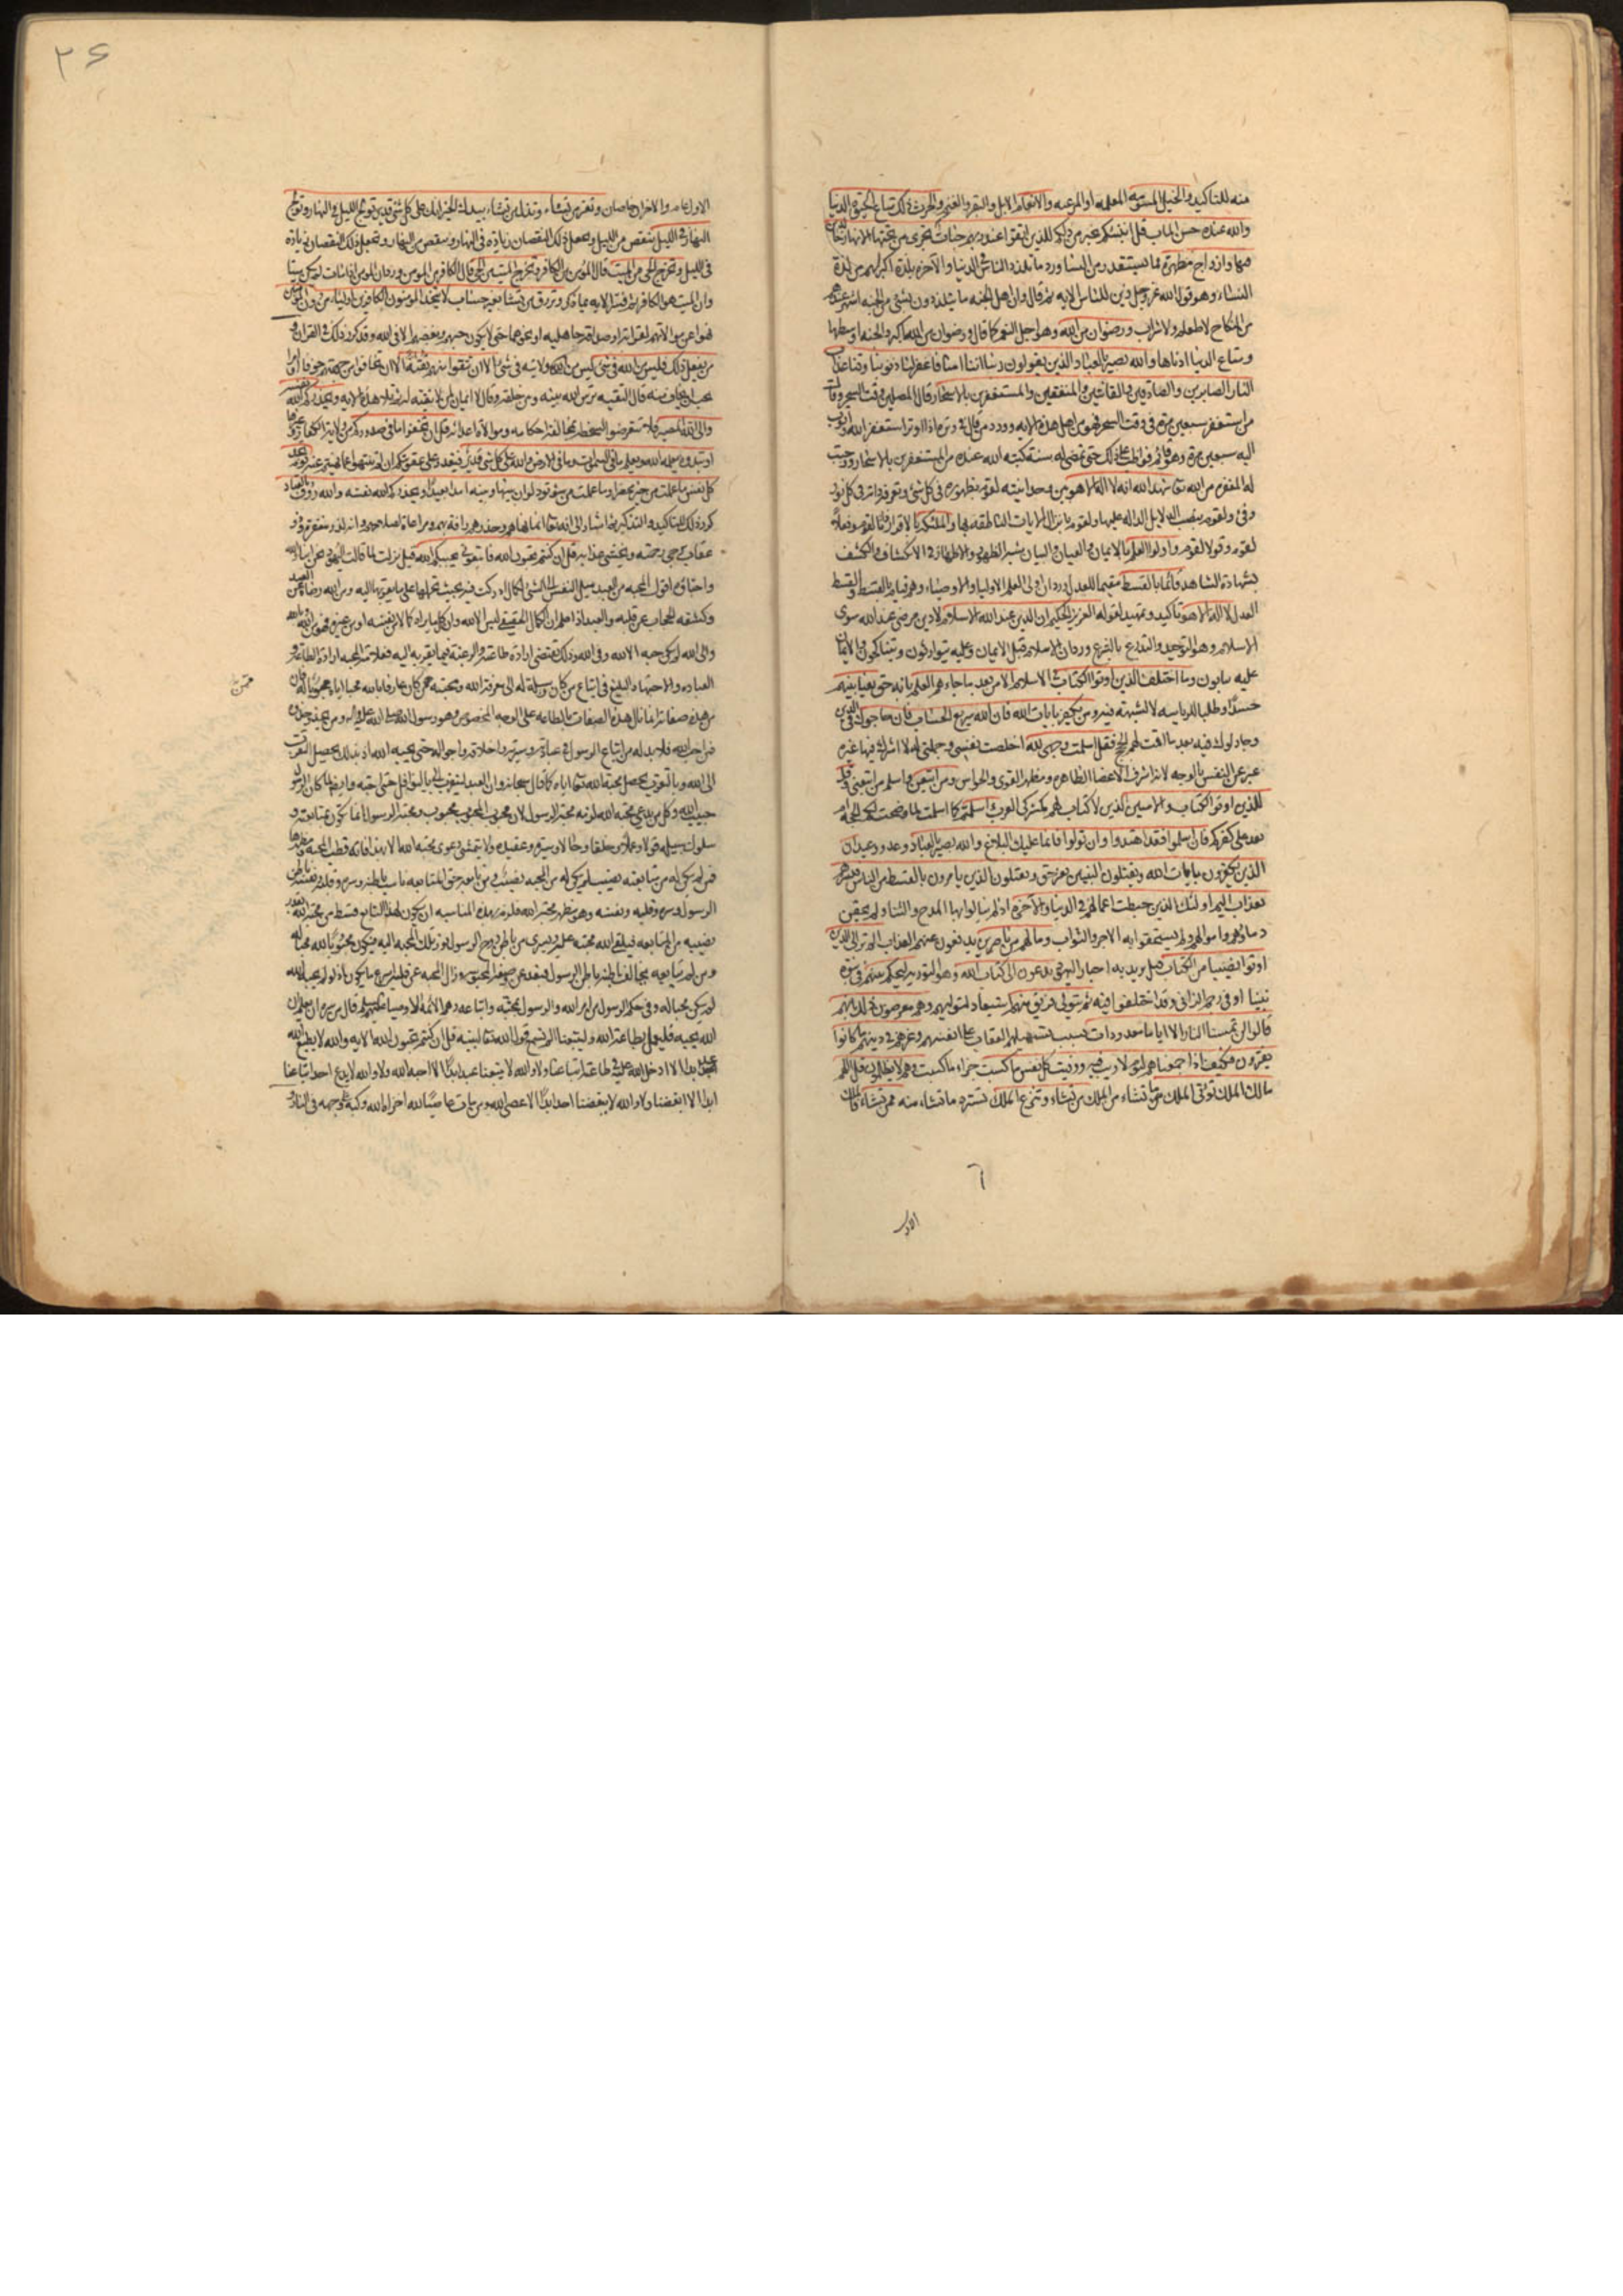 منه للتاكيد والخيل المسومة المعلمه او المرعيه والانعام الابل والبقر والغنم والحرث ذلك متاع الحيوة الدنيا
والله عنده حسن الماب قل اؤنبئكم بخير من ذلكم للذين اتقوا عند ربهم جنات تجرى من تحتها الانهار خالدين
فيها وازواج مطهرة مما يستقذر من النساء ورد ما تلذذ الناس فى الدنيا والآخرة بلذة اكبر لهم من لذة
النساء وهو قول الله عز وجل زين للناس الايه ثم قال وان اهل الجنه ما يتلذذون بشئ من الجنه اشهى عندهم
من النكاح لا طعام ولا شراب ورضوان من الله وهو اجل النعم كما قال ورضوان من الله اكبر والجنه اوسطها
ومتاع الدنيا ادناها والله بصير بالعباد الذين يقولون ربنا اننا امنا فاغفر لنا ذنوبنا وقنا عذاب
النار الصابرين والصادقين والقانتين والمنفقين والمستغفرين بالاسحار قال المصلين وقت السحر
من استغفر سبعين مرة فى وقت السحر فهو من اهل هذه الايه وورد من قال فى وتره اذا اوتر استغفر الله واتوب
اليه سبعين مرة وهو قائم فواظب على ذلك حتى تمضى له سنة كتبه الله عنده من المستغفرين بالاسحار ووجبت
له المغفرة من الله تعا شهد الله انه لا اله الا هو بين وحدانيته لقوم بظهوره فى كل شئ وتعرف ذاته فى كل نور
وفئ ولقوم بنصب الدلايل الداله عليها ولقوم بانزال الايات الناطقه بها والملئكة بالاقرار
لقوم وقولا لقوم واولوا العلم بالايمان والعيان والبيان
بشهادة الشاهد قائما بالقسط مقيما للعدل ورد ان اولى العلم الاوليا والاوصياء وهم قيام بالقسط والقسط
العدل لا اله الا هو تاكيد وتمهيد لقوله العزيز الحكيم ان الدين عند الله الاسلام لا دين مرضى عند الله سوى
الاسلام وهو التوحيد والتدرع بالشرع ورد ان الاسلام قبل الايمان وعليه يتوارثون ويتناكحون والايمان
عليه يثابون وما اختلف الذين اوتوا الكتاب فى الاسلام الا من بعد ما جاءهم العلم بانه حق بغيا بينهم
حسدا وطلبا للرياسه لا لشبهة فيه ومن يكفر بايات الله فان الله سريع الحساب فان حاجوك فى الدين
وجادلوك فيه بعد ما اقمت لهم الحجج فقل اسلمت وجهى لله اخلصت نفسى وجملتى له لا اشرك فيها غيره
عبر عن النفس بالوجه لانه اشرف الاعضا الظاهره ومظهر القوى والحواس ومن اتبعن واسلم من اتبعنى وقل
للذين اوتوا الكتاب والاميين الذين لا كتاب لهم كمشركى العرب ءاسلمتم كما اسلمت لما وضحت لكم الحجة ام
بعد على كفركم فان اسلموا فقد اهتدوا وان تولوا فانما عليك البلاغ والله بصير بالعباد وعد ووعيد ان
الذين يكفرون بايات الله ويقتلون النبيين بغير حق ويقتلون الذين يامرون بالقسط من الناس فبشرهم
بعذاب اليم اولئك الذين حبطت اعمالهم فى الدنيا والآخرة اذ لم ينالوا بها المدح والثنا ولم يحقن
دماؤهم واموالهم ولم يستحقوا به الاجر والثواب وما لهم من ناصرين يدفعون عنهم العذاب الم تر الى الذين
اوتوا نصيبا من الكتاب قيل يريد به احبار اليهود يدعون الى كتاب الله وهو التوريه ليحكم بينهم فى نبوة
نبينا او فى رجم الزانى وقد اختلفوا فيه ثم يتولى فريق منهم استبعاد لتوليهم وهم معرضون ذلك بانهم
قالوا لن تمسنا النار الا اياما معدودات بسبب تسهيلهم العقاب على انفسهم وغرهم فى دينهم ما كانوا
يفترون فكيف اذا جمعناهم ليوم لا ريب فيه ووفيت كل نفس ما كسبت جزاء ما كسبت وهم لا يظلمون قل اللهم
مالك الملك تؤتى الملك من تشاء من الملك من تشاء وتنزع الملك تسترد ما تشاء منه ممن تشاء فالملك
٦
الاول
٢٦
الاول عام والاخران خاصان وتعز من تشاء وتذل من تشاء بيدك الخير انك على كل شئ قدير تولج الليل فى النهار وتولج
النهار فى الليل ينقص من الليل ويجعل ذلك النقصان زيادة فى النهار وينقص من النهار ويجعل ذلك النقصان زيادة
فى الليل وتخرج الحى من الميت قال المؤمن من الكافر وتخرج الميت من الحى قال الكافر من المومن ورد ان المومن اذا مات لم يكن ميتا
وان الميت هو الكافر ثم فسر الايه بما ذكر وترزق من تشاء بغير حساب لا يتخذ المومنون الكافرين اولياء من دون المؤمنين
نهوا عن موالاتهم لقرابة او صداقة جاهليه او نحوهما حتى لا يكون حبهم وبغضهم الا فى الله وقد كرر ذلك فى القران
من يفعل ذلك فليس من الله فى شئ ليس من ولاية الله فى شئ الا ان تتقوا منهم تقية الا ان تخافوا من جهتهم خوفا او امرا
يجب ان يخاف منه قال التقيه ترس الله بينه وبين خلقه وقال لا ايمان لمن لا تقيه له ثم تلا هذه الايه ويحذركم الله نفسه
والى الله المصير فلا تتعرضوا لسخطه بمخالفة احكامه وموالاة اعدائه قل ان تخفوا ما فى صدوركم من ولاية الكفار وغيرها
او تبدوه يعلمه الله ويعلم ما فى السموات وما فى الارض والله على كل شئ قدير فيقدر على عقوبتكم ان لم تنتهوا عما نهيتم عنه يوم تجد
كل نفس ما عملت من خير محضرا وما عملت من سوء تود لو ان بينها وبينه امدا بعيدا ويحذركم الله نفسه والله رؤف بالعباد
كرر ذلك للتاكيد والتذكير
عقاب يرجى رحمته ويخشى عذابه قل ان كنتم تحبون الله فاتبعونى يحببكم الله قيل نزلت لما قالت اليهود نحن ابناء الله
واحباؤه اقول المحبه من العبد ميل النفس الى الشئ لكمال ادركت فيه بحيث يحملها على ما يقربها اليه ومن الله رضاه عن العبد
وكشفه الحجاب عن قلبه والعبد اذا علم ان الكمال الحقيقى ليس الا لله وان كل ما يراه كمالا من نفسه او من غيره فهو من الله وبالله
والى الله لم يكن حبه الا لله وفى الله وذلك يقتضى ارادة طاعته والرغبة فيما يقربه اليه فعلامة المحبه ارادة الطاعة و
العباده والاجتهاد البليغ فى اتباع من كان وسيلة له الى معرفة الله ومحبته ممن كان عارفا بالله محبا اياه محبوبا له فان
من هذه صفاته انما نال هذه الصفات بالطاعه على الوجه المخصوص وهو رسول الله صلى الله عليه واله ومن يحذو حذوه
فمن احب الله فلا بد له من اتباع الرسول فى عبادته وسيرته واخلاقه واحواله حتى يحبه الله اذ بذلك يحصل التقرب
الى الله وبالتقرب يحصل محبة الله تعا اياه كما قال سبحانه وان العبد ليتقرب الى بالنوافل حتى احبه وايضا لما كان الرسول
حبيب الله وكل من يدعى محبة الله لزمه محبة الرسول لان محبوب المحبوب محبوب ومحبة الرسول انما تكون بمتابعته و
سلوك سبيله قولا وعملا وخلقا وحالا وسيرة وعقيده ولا يتمشى دعوى محبة الله الا بهذا فانه قطب المحبه ومظهرها
فمن لم يكن له من متابعته نصيب لم يكن له من المحبه نصيب ومن تابعه حق المتابعه ناسب باطنه وسره وقلبه ونفسه باطن
الرسول وسره وقلبه ونفسه وهو مظهر محبة الله فلزم بهذه المناسبه ان يكون لهذا التابع قسط من محبة الله بقدر
نصيبه من المتابعه فيلقى الله محبته عليه ويسرى من باطن روح الرسول نور تلك المحبه اليه فيكون محبوبا لله محبا له
ومن لم يتابعه يخالف باطنه باطن الرسول فبعد عن وصف المحبوبيه وزال المحبه عن قلبه اسرع ما يكون اذ لو لم يحبه الله
لم يكن محبا له وفى حكم الرسول من امر الله والرسول بمحبته واتباعه وهم الائمة الاوصيا عليهم السلم قال من سره ان يعلم ان
الله يحبه فليعمل بطاعة الله وليتبعنا الم تسمع قول الله تعا لنبيه قل ان كنتم تحبون الله الايه والله لا يطيع الله
عبد ابدا الا ادخل الله عليه فى طاعته اتباعنا ولا والله لا يتبعنا عبد ابدا الا احبه الله ولا والله لا يدع احد اتباعنا
ابدا الا ابغضنا ولا والله لا يبغضنا احد ابدا الا عصى الله ومن مات عاصيا لله اخزاه الله وكبه على وجهه فى النار